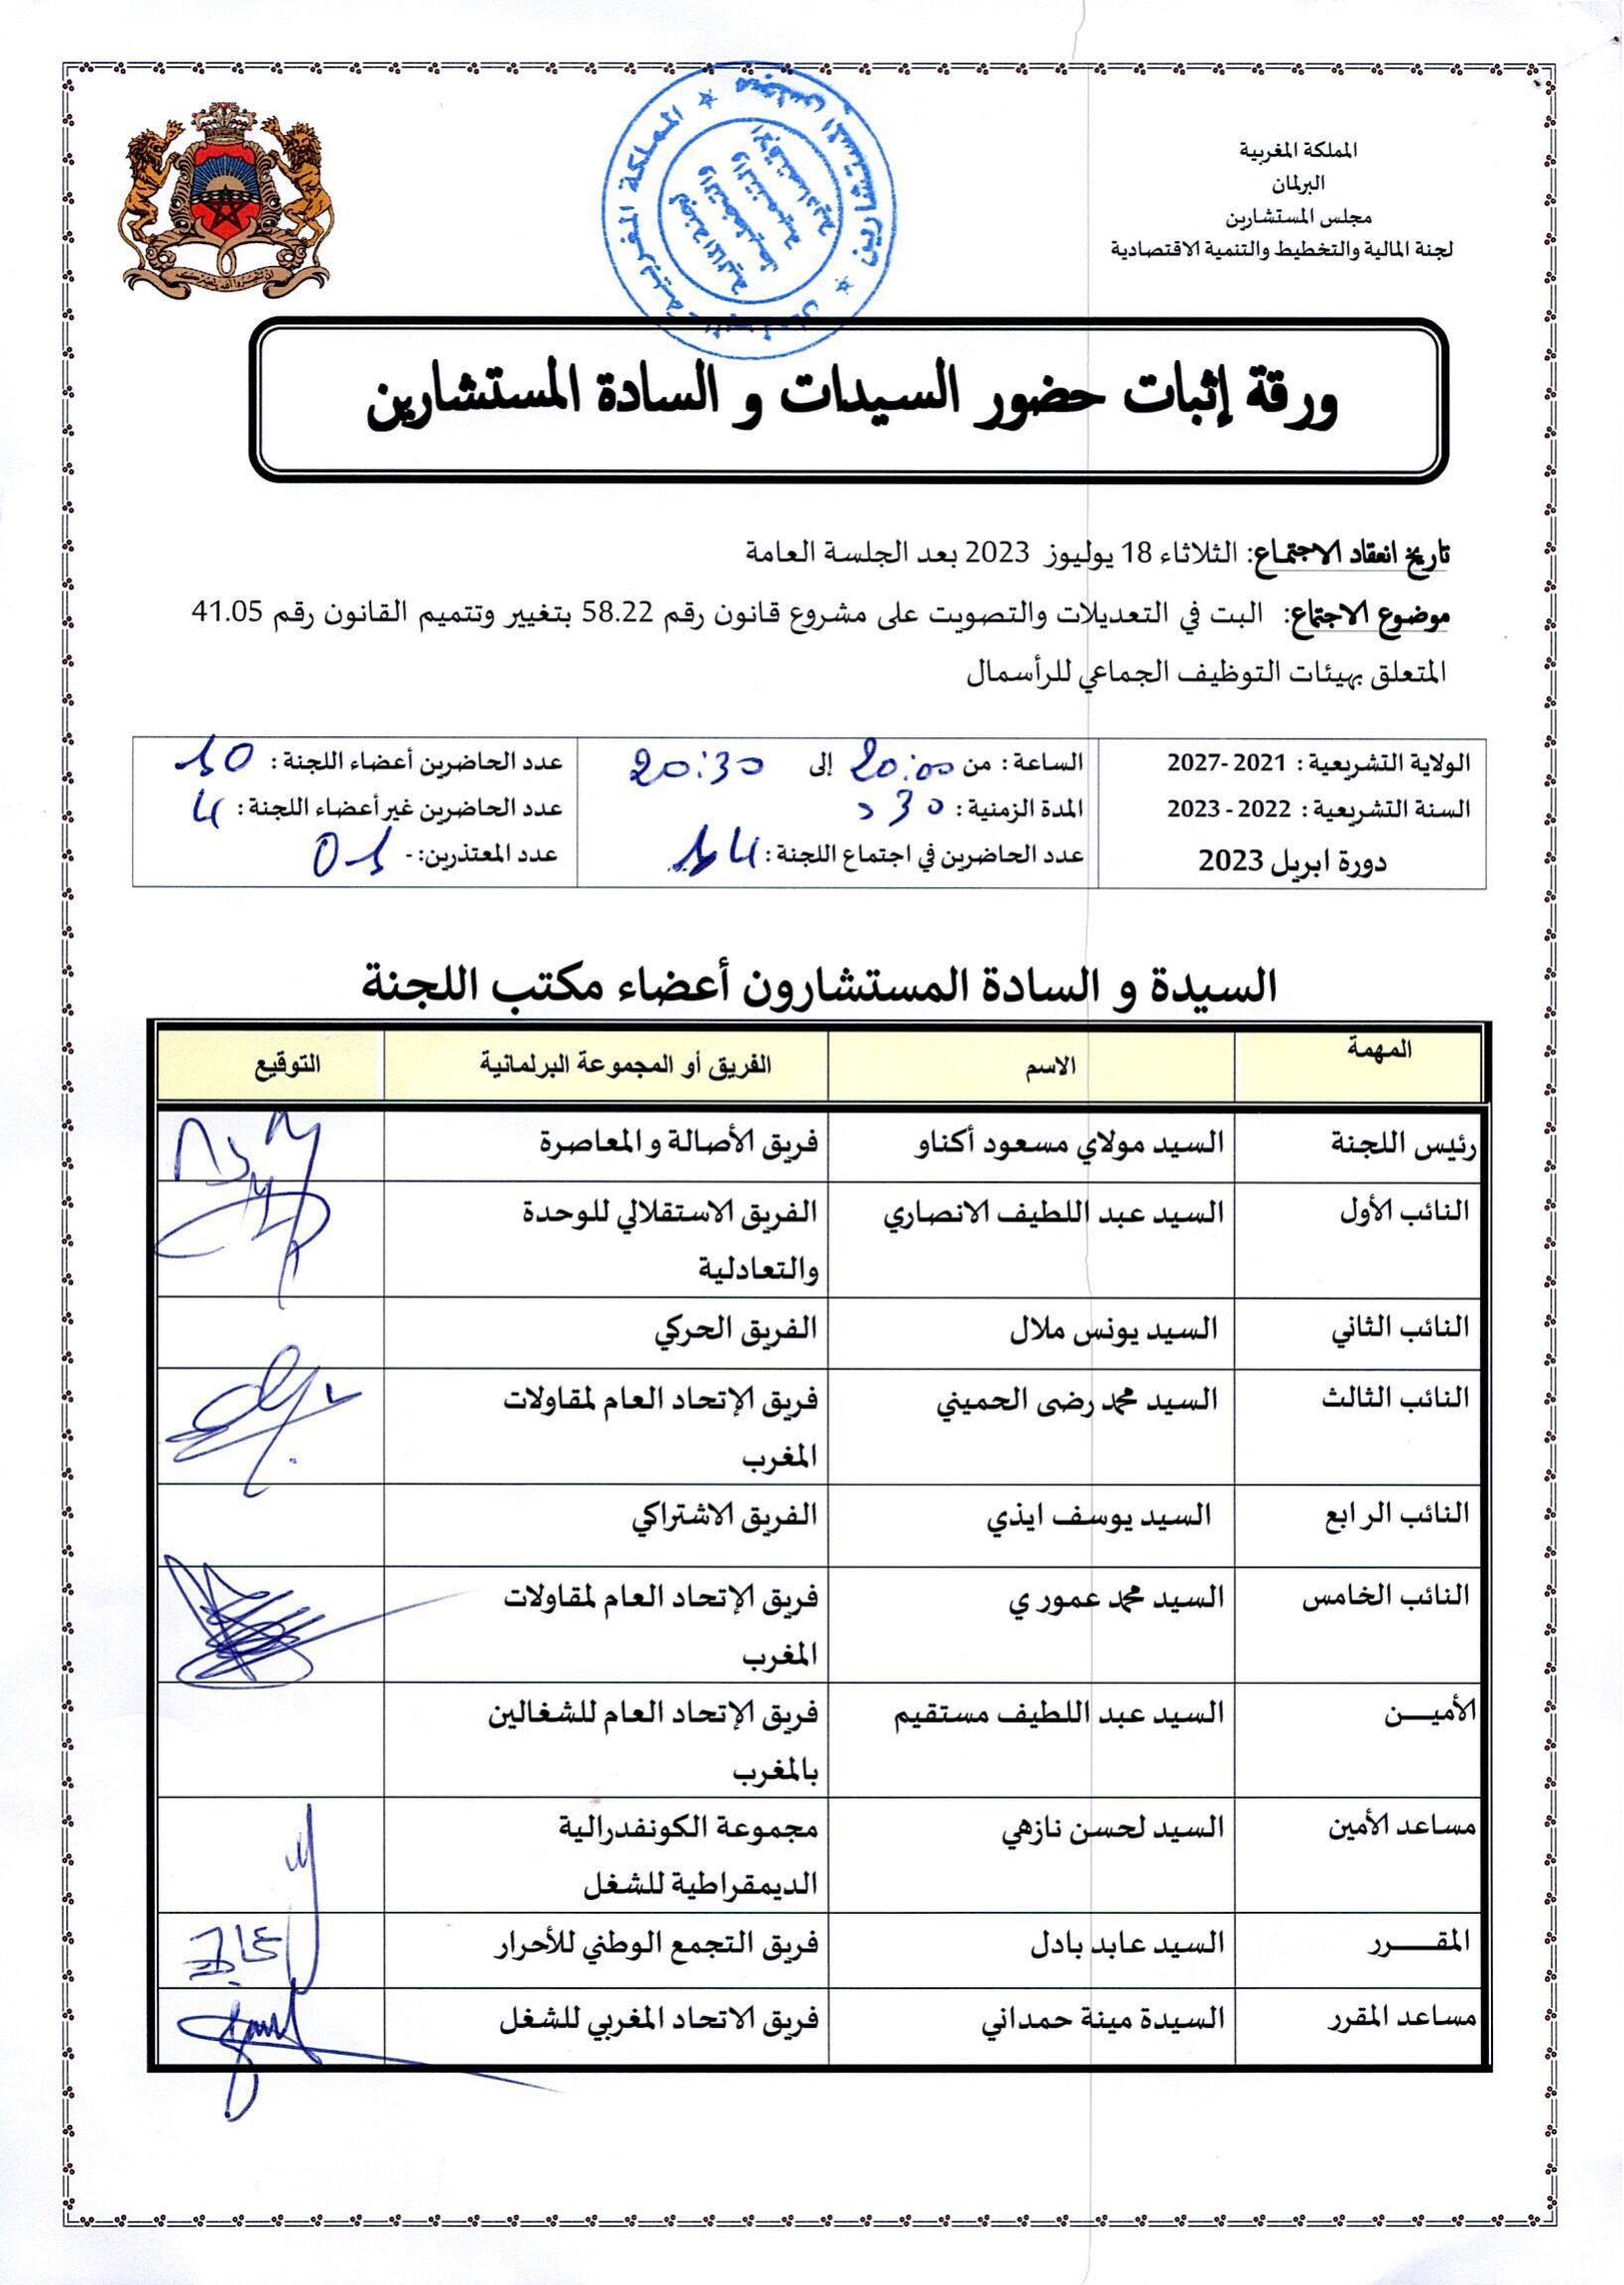 المملكة المغربية
البرلمان
مجلس المستشارين
لجنة المالية والتخطيط والتنمية الاقتصادية
المملكة المغربية - البرلمان ★ مجلس المستشارين ★
لجنة المالية
والتخطيط
والتنمية
الاقتصادية
ورقة إثبات حضور السيدات و السادة المستشارين
تاريخ انعقاد الاجتماع: الثلاثاء 18 يوليوز 2023 بعد الجلسة العامة
موضوع الاجتماع: البت في التعديلات والتصويت على مشروع قانون رقم 58.22 بتغيير وتتميم القانون رقم 41.05
المتعلق بهيئات التوظيف الجماعي للرأسمال
الولاية التشريعية : 2021 -2027
السنة التشريعية : 2022 - 2023
دورة ابريل 2023
الساعة : من 20:00 إلى 20:30
المدة الزمنية : 30 د
عدد الحاضرين في اجتماع اللجنة : 14
عدد الحاضرين أعضاء اللجنة : 10
عدد الحاضرين غير أعضاء اللجنة : 4
عدد المعتذرين: - 01
السيدة و السادة المستشارون أعضاء مكتب اللجنة
المهمة الاسم الفريق أو المجموعة البرلمانية التوقيع
رئيس اللجنة السيد مولاي مسعود أكناو فريق الأصالة و المعاصرة
النائب الأول السيد عبد اللطيف الانصاري الفريق الاستقلالي للوحدة
والتعادلية
النائب الثاني السيد يونس ملال الفريق الحركي
النائب الثالث السيد محمد رضى الحميني فريق الإتحاد العام لمقاولات
المغرب
النائب الرابع السيد يوسف ايذي الفريق الاشتراكي
النائب الخامس السيد محمد عموري فريق الإتحاد العام لمقاولات
المغرب
الأميـــن السيد عبد اللطيف مستقيم فريق الإتحاد العام للشغالين
بالمغرب
مساعد الأمين السيد لحسن نازهي مجموعة الكونفدرالية
الديمقراطية للشغل
المقـــــرر السيد عابد بادل فريق التجمع الوطني للأحرار
مساعد المقرر السيدة مينة حمداني فريق الاتحاد المغربي للشغل